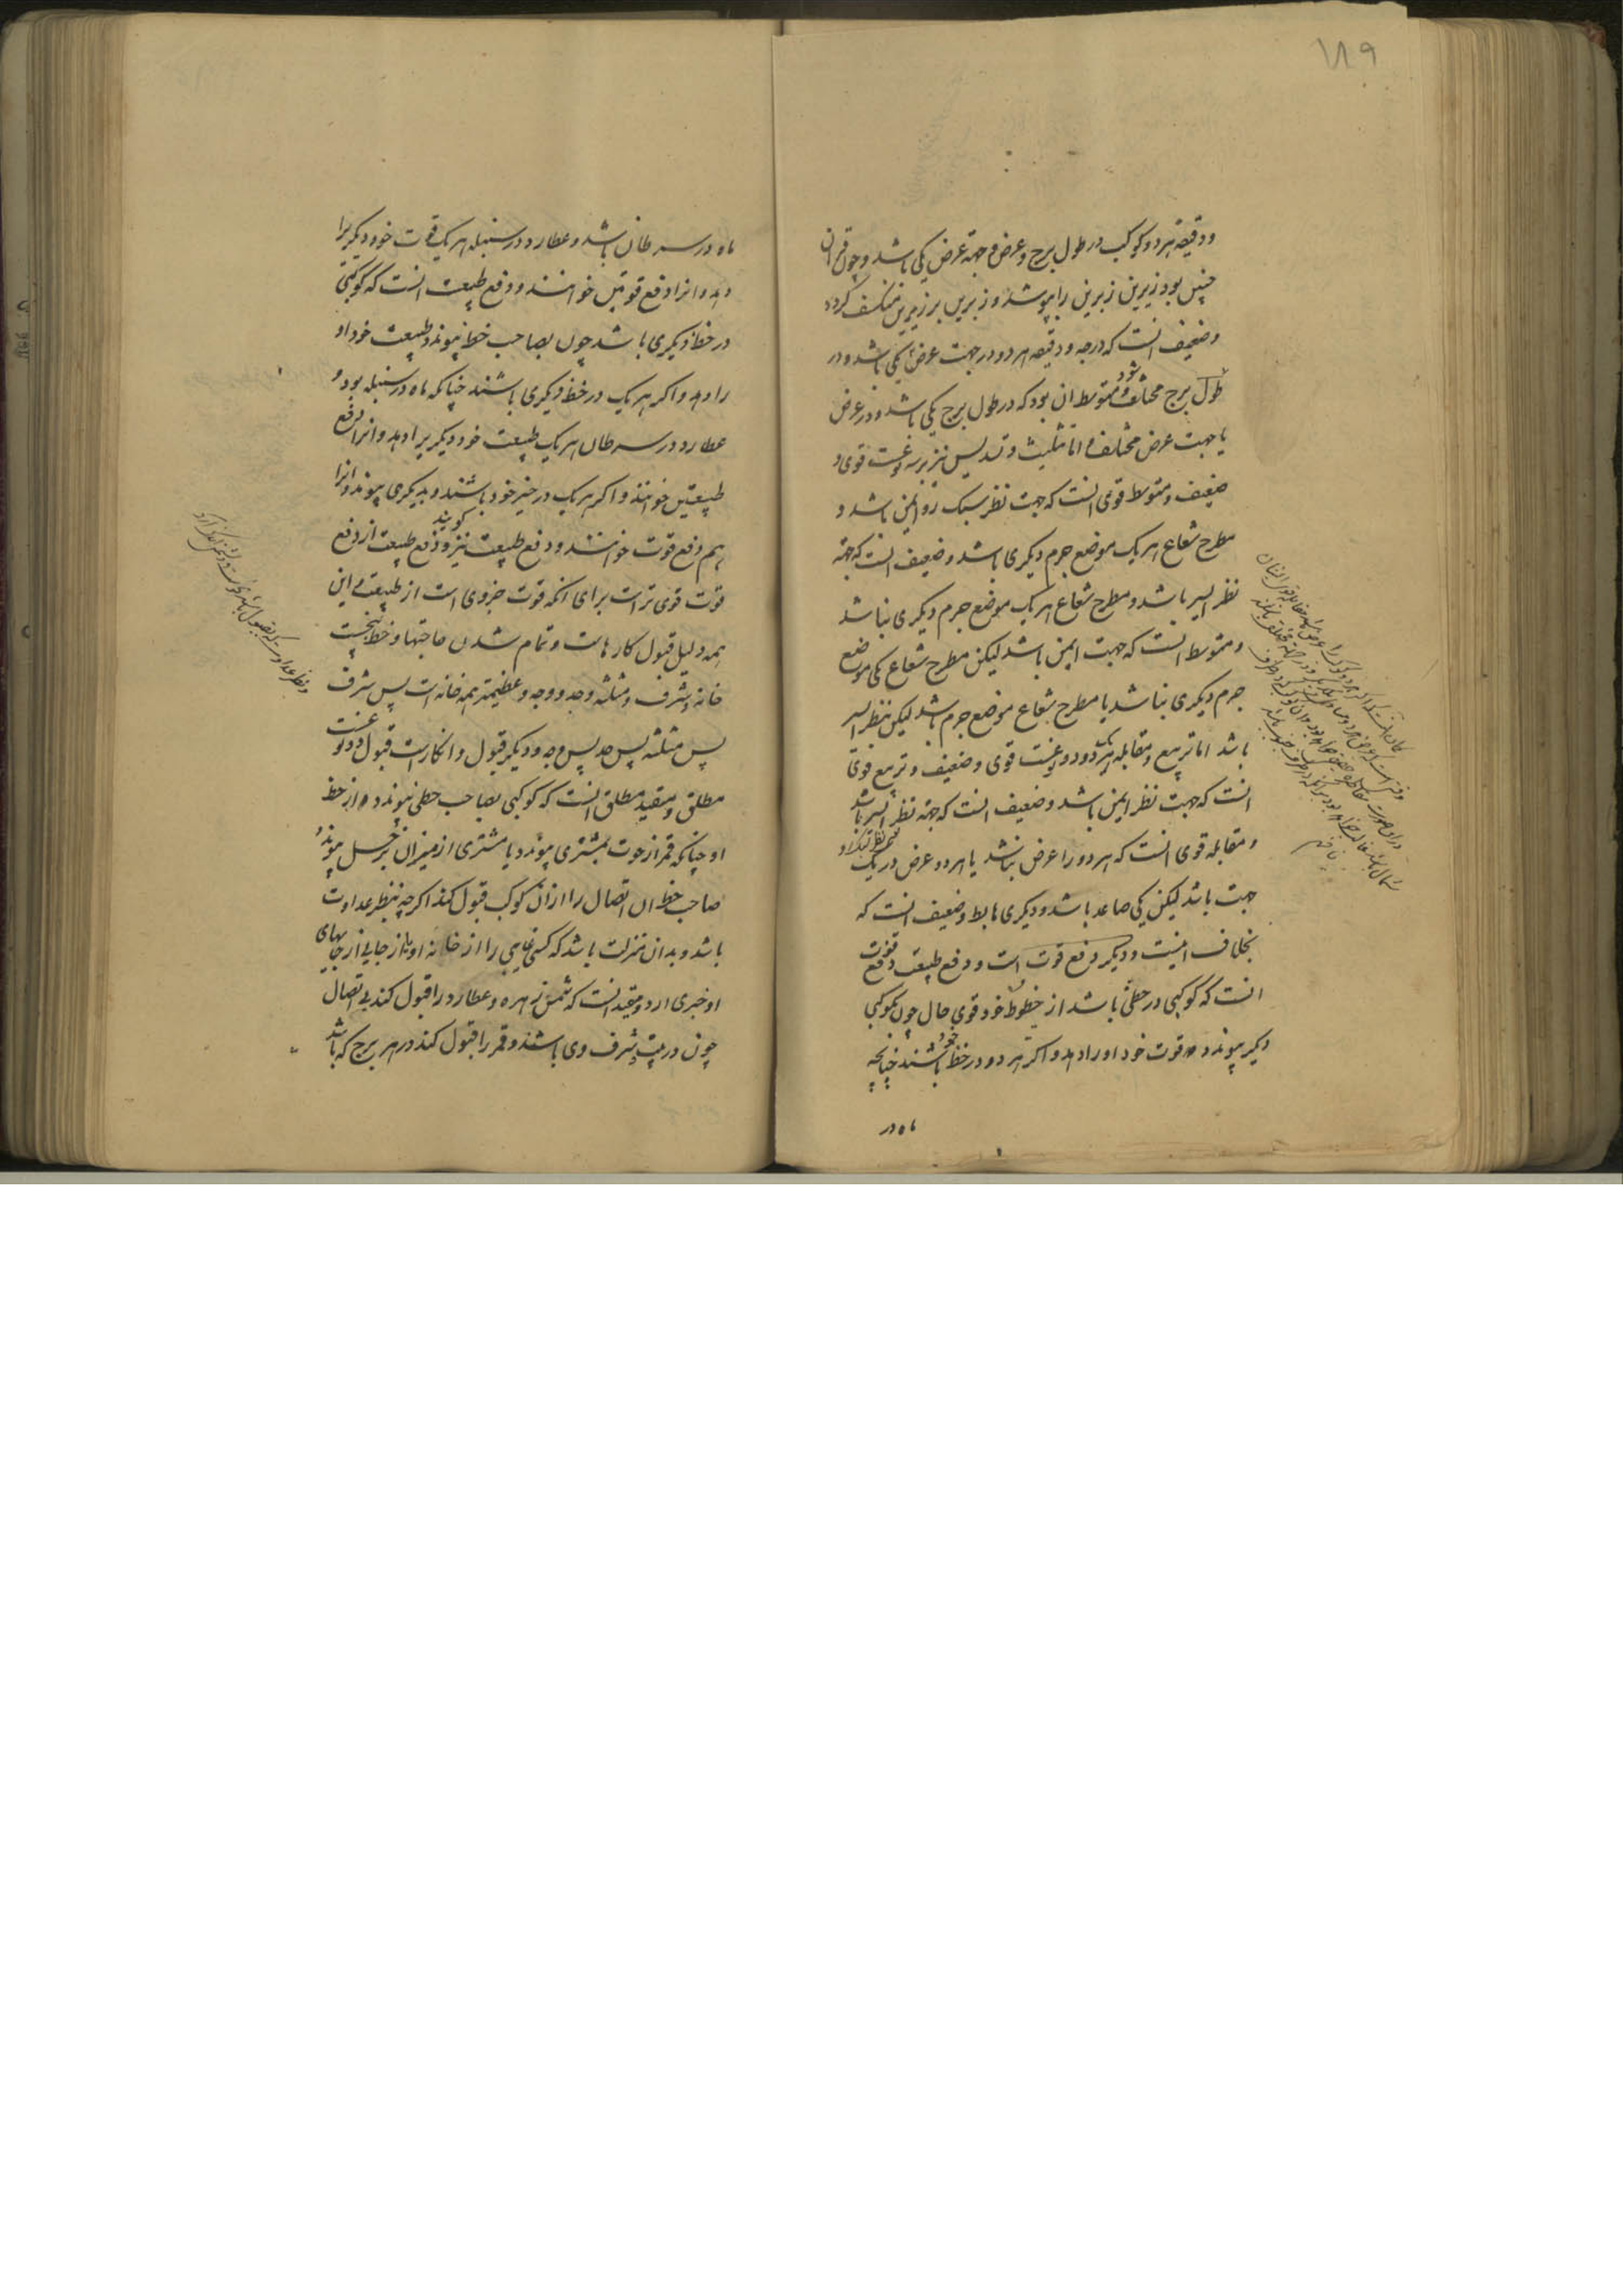 ۱۸۹
ودقیقه هردو کوکب در طول برج و عرض و جهة عرض یکی باشد و چون قران
چنین بود زیرین زبرین را بپوشد و زبرین بر زیرین منکسف کردد
وضعیف انست که درجه و دقیقه هر دو در جهت عرض یکی باشد و در
طول برج مختلف شود و متوسط ان بود که در طول برج یکی باشد و در عرض
یا جهت عرض مختلف و اما تثلیث و تسدیس نیز بر سه نوعست قوی و
ضعیف و متوسط قوی انست که جهت نظر سبک رو ایمن باشد و
مطرح شعاع هر یک موضع جرم دیکری باشد و ضعیف انست که جهة
نظر ایسر باشد و مطرح شعاع هر یک موضع جرم دیکری نباشد
و متوسط انست که جهت ایمن باشد لیکن مطرح شعاع یکی موضع
جرم دیکری نباشد یا مطرح شعاع موضع جرم باشد لیکن نظر ایسر
باشد اما تربیع و مقابله هر یک دو دو نوعست قوی و ضعیف و تربیع قوی
انست که جهت نظر ایمن باشد و ضعیف انست که جهة نظر ایسر باشد
و مقابله قوی انست که هر دو را عرض نباشد یا هر دو عرض در یک
جهت باشد لیکن یکی صاعد باشد و دیکری هابط و ضعیف انست که
بخلاف اینست و دیکر دفع قوت است و دفع طبیعت دفع قوت
انست که کوکبی در حظی باشد از حظوظ خود قوی حال چون بکوکبی
دیکر پیوندد قوت خود او را دهد و اکر هر دو در حظ خود باشند چنانچه
ماه در
ماه در سرطان باشد و عطارد در سنبله هر یک قوت خود دیکریرا
دهد و انرا دفع قوتین خوانند و دفع طبیعت انست که کوکبی
در حظ دیکری باشد چون بصاحب حظ پیوندد طبیعت خود او
را دهد و اکر هر یک در حظ دیکری باشند چنانکه ماه در سنبله بود و
عطارد در سرطان هر یک طبیعت خود دیکریرا دهد و انرا دفع
طبیعتین خوانند و اکر هر یک در حیز خود باشند و بدیکری پیوندد انرا
هم دفع قوت خوانند و دفع طبیعت نیز کویند و دفع طبیعت از دفع
قوت قوی تر است برای انکه قوت جزوی است از طبیعت و این
همه دلیل قبول کارهاست و تمام شدن حاجتها و حظ نخست
خانه و شرف و مثلثه و حد و وجه و عظیمتر همه خانه است پس شرف
پس مثلثه پس حد پس وجه و دیکر قبول و انکار است قبول دو نوعست
مطلق و مقید مطلق انست که کوکبی بصاحب حظی پیوندد از حظ
او چنانکه قمر از حوت بمشتری پیوندد یا مشتری از میزان بزحل پیوندد
صاحب حظ ان اتصال را از ان کوکب قبول کند اکرچه بنظر عداوت
باشد و بدان منزلت باشد که کسی غایبی را از خانه او یا از جایی از جایهای
او خبری ارد و مقید انست که شمس زهره و عطارد را قبول کند بی اتصال
چون در بیت شرف وی باشند و قمر را قبول کند در هر برج که باشد